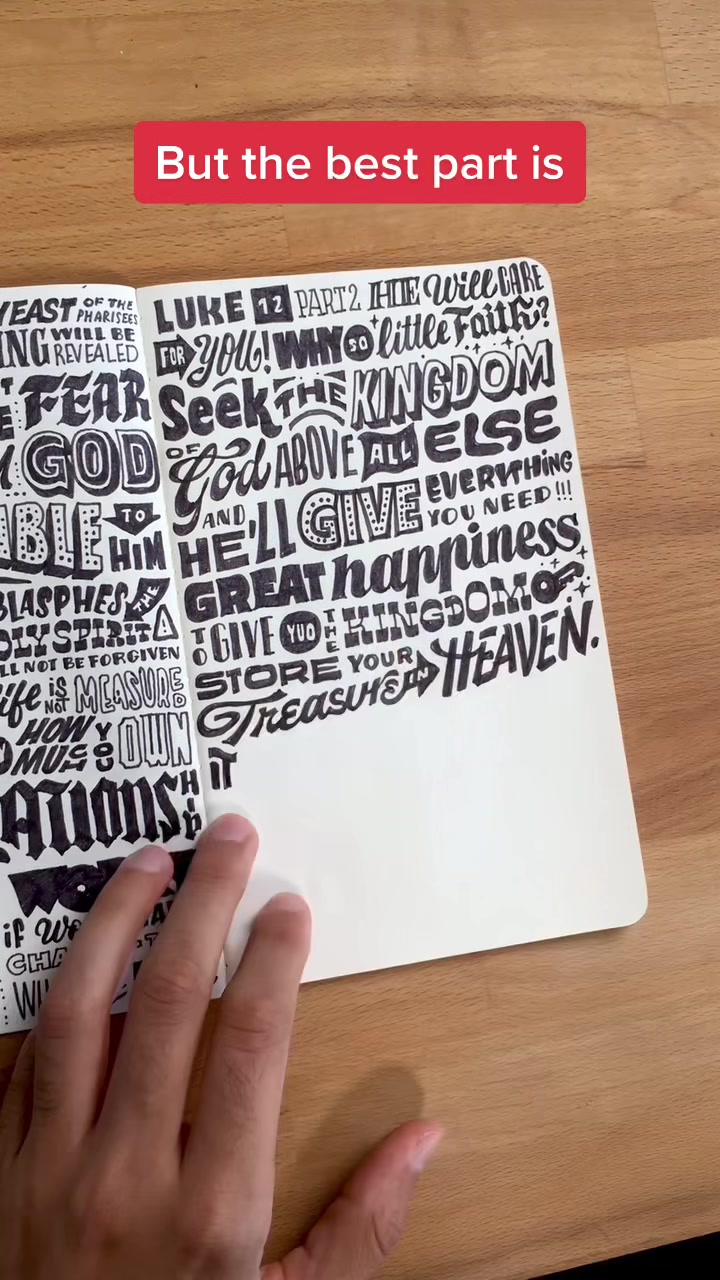 But the best part is
YEAST OF THE PHARISEES
WILL BE REVEALED
FEAR
GOD
TO HIM
BLASPHES THE
SPIRIT
NOT BE FORGIVEN
life is NOT MEASURED
HOW MUCH YOU OWN
if
LUKE 12 PART2 HE Will CARE
FOR YOU! WHY SO little Faith?
Seek THE KINGDOM
OF God ABOVE ALL ELSE
AND HE'LL GIVE EVERYTHiNG YOU NEED!!!
GREAT happiness
TO GIVE YUO THE KINGDOM
STORE YOUR
Treasure HEAVEN.
IT